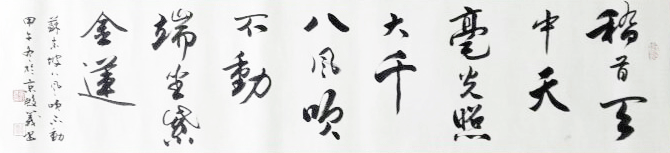 稽首天
中天
毫光照
大千
八风吹
不動
端坐紫
金蓮
蘇东坡八风吹不動
甲午冬於京